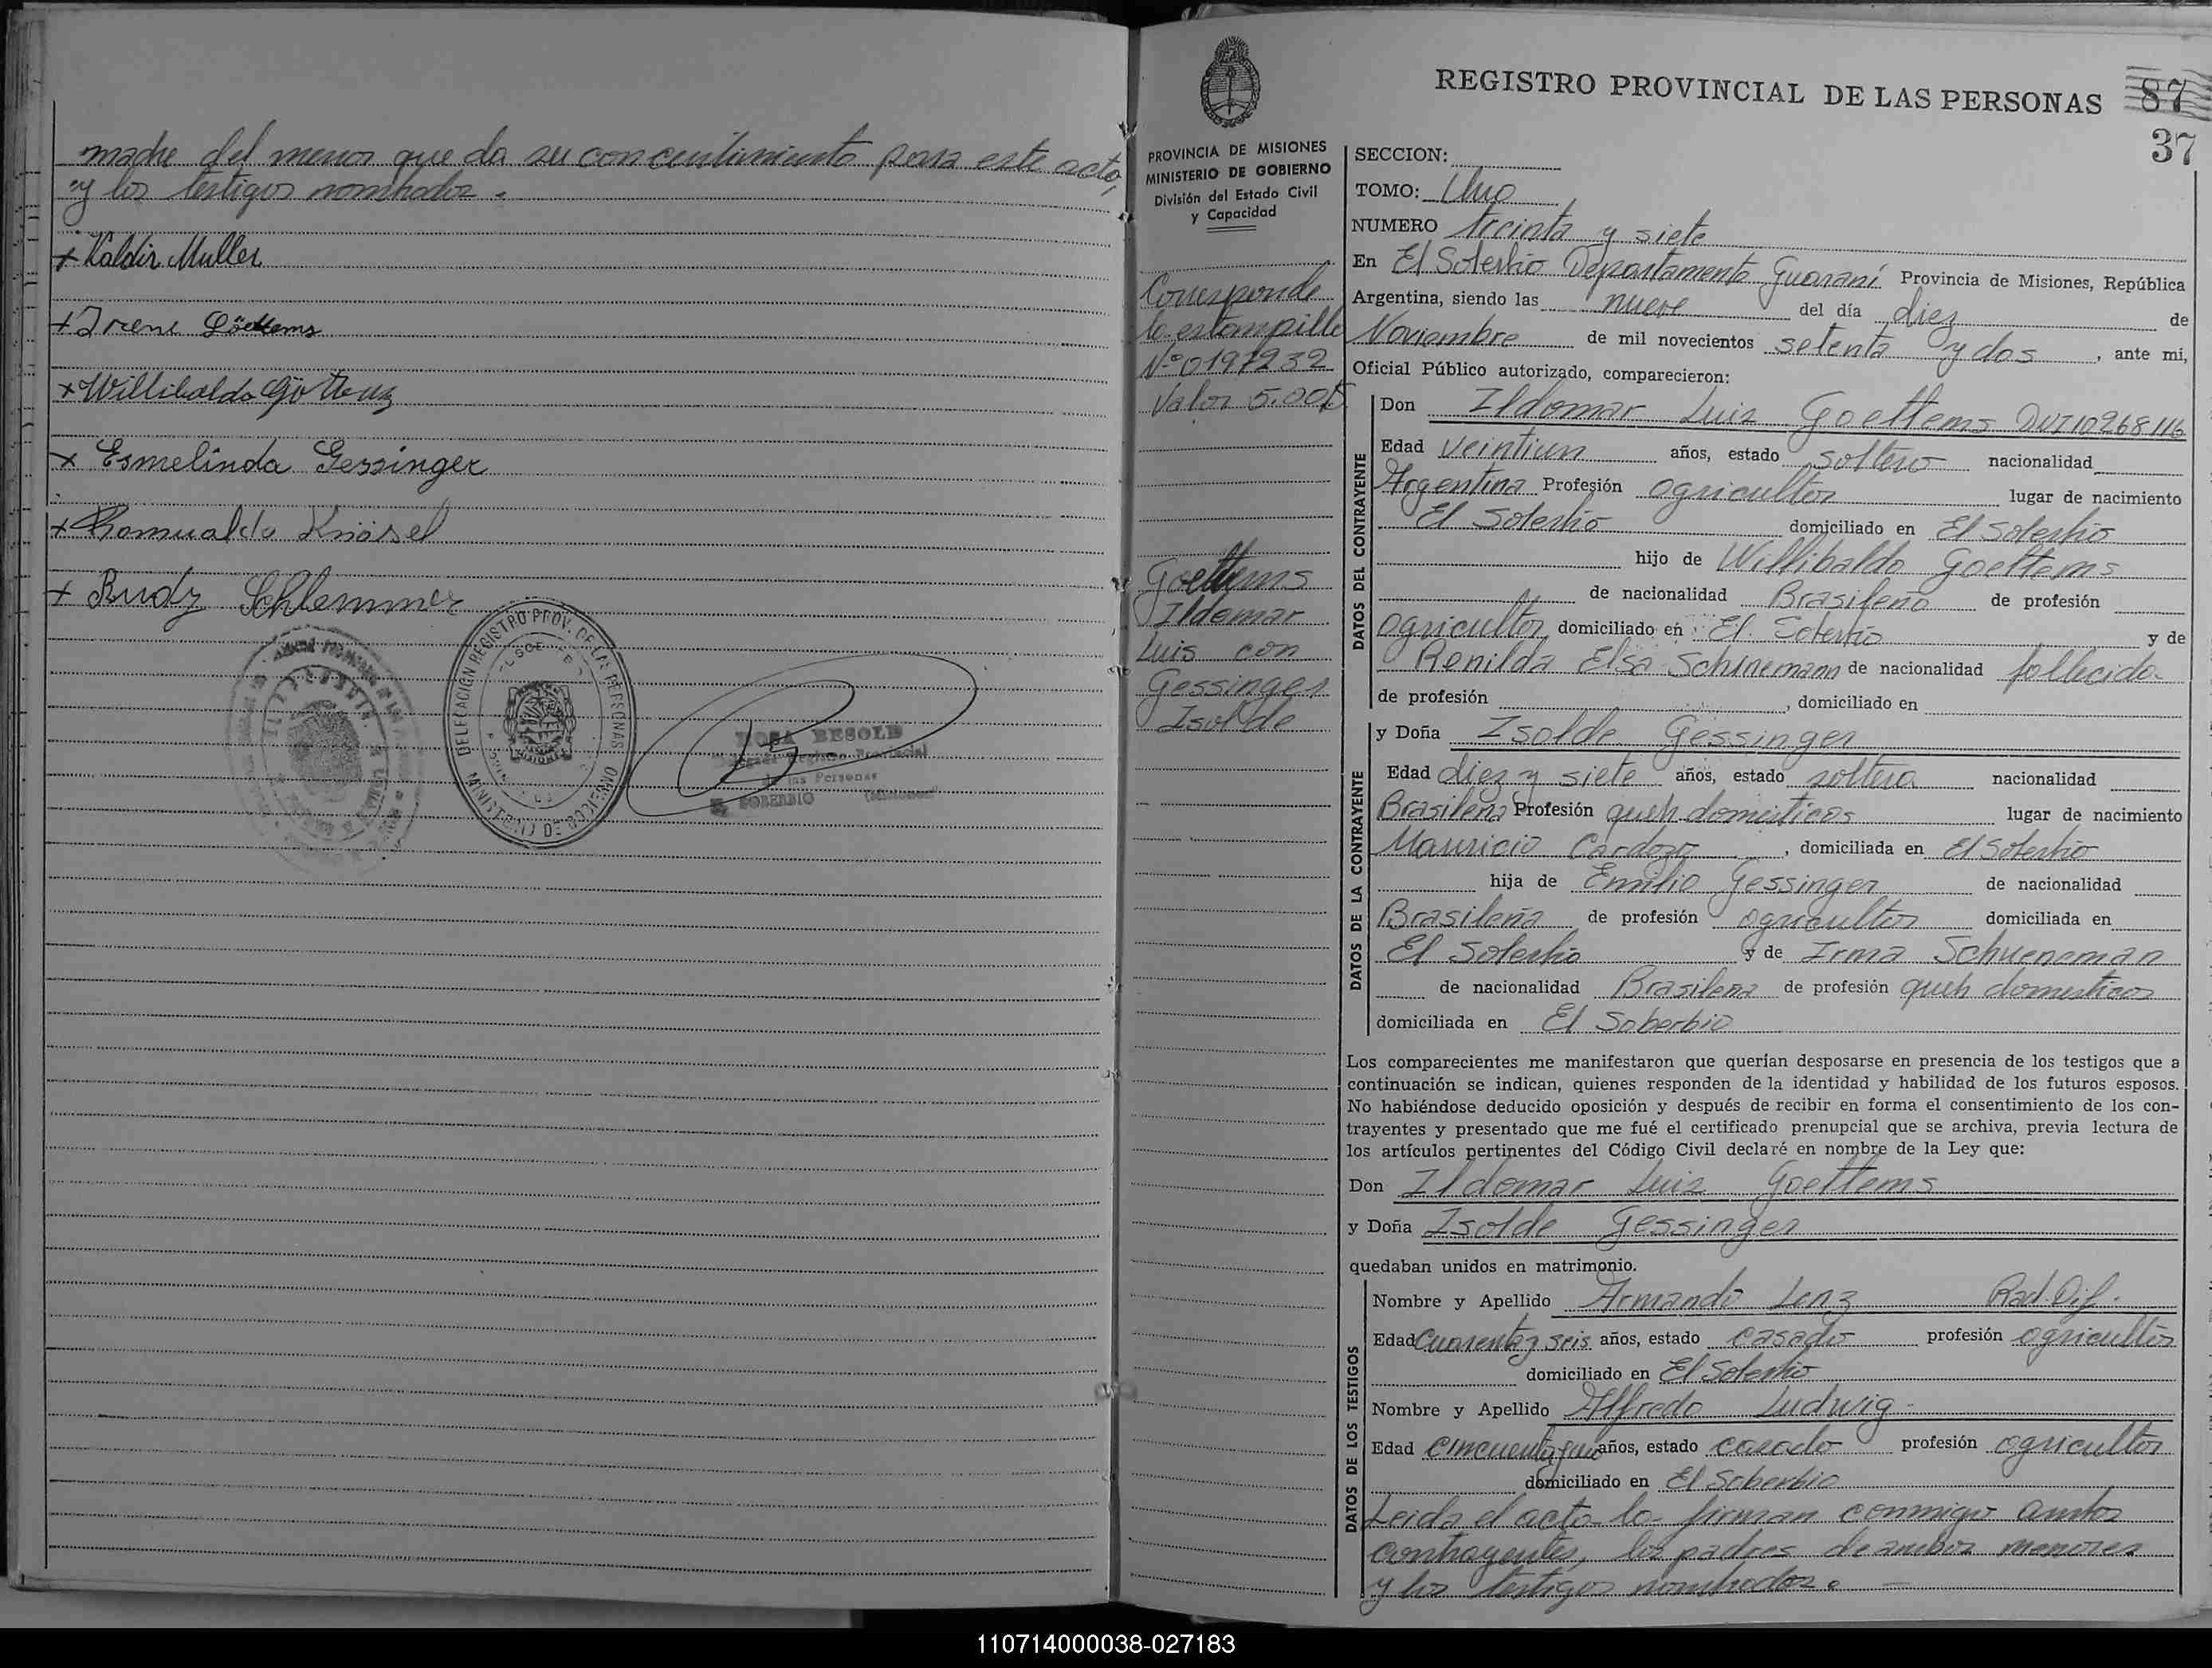 madre del menor que da su concentimiento para este acto,
y los testigos nombrados.
+ Valdir Muller
+ Irene Göettems
+ Willibaldo Göttems
+ Esmelinda Gessinger
+ Romualdo Knäsel
+ Rudy Schlemmer
DELEGACION REGISTRO PROV. DE LAS PERSONAS
ROSA BESOLD
Delegada Registro Provincial
de las Personas
EL SOBERBIO (Misiones)
REGISTRO PROVINCIAL DE LAS PERSONAS 87
37
PROVINCIA DE MISIONES
MINISTERIO DE GOBIERNO
División del Estado Civil
y Capacidad
Corresponde
la estampilla
Nº 0197232
Valor 5.00$
Goettems
Ildemar
Luis con
Gessinger
Isolde
SECCION:
TOMO: Uno
NUMERO treinta y siete
En El Soberbio Departamento Guaraní Provincia de Misiones, República
Argentina, siendo las nueve del día diez de
Noviembre de mil novecientos setenta y dos, ante mi,
Oficial Público autorizado, comparecieron:
DATOS DEL CONTRAYENTE
Don Ildomar Luiz Goettems DNI 10268116
Edad veintiun años, estado soltero nacionalidad
Argentina Profesión agricultor lugar de nacimiento
El Soberbio domiciliado en El Soberbio
hijo de Willibaldo Goettems
de nacionalidad Brasileño de profesión
agricultor domiciliado en El Soberbio y de
Renilda Elsa Schinemann de nacionalidad fallecida
de profesión , domiciliado en
DATOS DE LA CONTRAYENTE
y Doña Isolde Gessinger
Edad diez y siete años, estado soltera nacionalidad
Brasileña Profesión queh. domesticos lugar de nacimiento
Mauricio Cardozo, domiciliada en El Soberbio
hija de Emilio Gessinger de nacionalidad
Brasileña de profesión agricultor domiciliada en
El Soberbio y de Irma Schueneman
de nacionalidad Brasilena de profesión queh domesticos
domiciliada en El Soberbio
Los comparecientes me manifestaron que querían desposarse en presencia de los testigos que a
continuación se indican, quienes responden de la identidad y habilidad de los futuros esposos.
No habiéndose deducido oposición y después de recibir en forma el consentimiento de los con-
trayentes y presentado que me fué el certificado prenupcial que se archiva, previa lectura de
los artículos pertinentes del Código Civil declaré en nombre de la Ley que:
Don Ildomar Luiz Goettems
y Doña Isolde Gessinger
quedaban unidos en matrimonio.
DATOS DE LOS TESTIGOS
Nombre y Apellido Armando Lenz Rad. Dif.
Edad Cuarenta y seis años, estado casado profesión agricultor
domiciliado en El Soberbio
Nombre y Apellido Alfredo Ludwig
Edad cincuenta años, estado casado profesión agricultor
domiciliado en El Soberbio
Leida el acta la firman conmigo ambos
contrayentes, los padres de ambos menores
y los testigos nombrados.
110714000038-027183